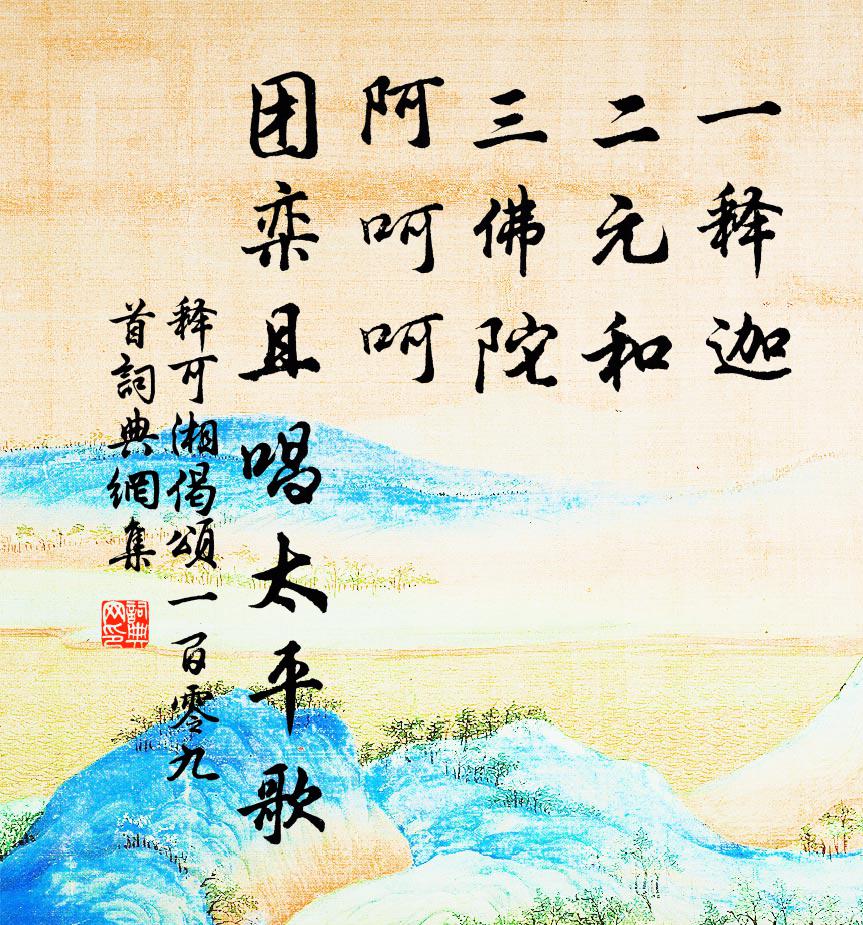 一释迦
二元和
三佛陀
阿呵呵
团栾且唱太平歌
释可湘偈頌一百零九
首詞典網集
詞典
网印